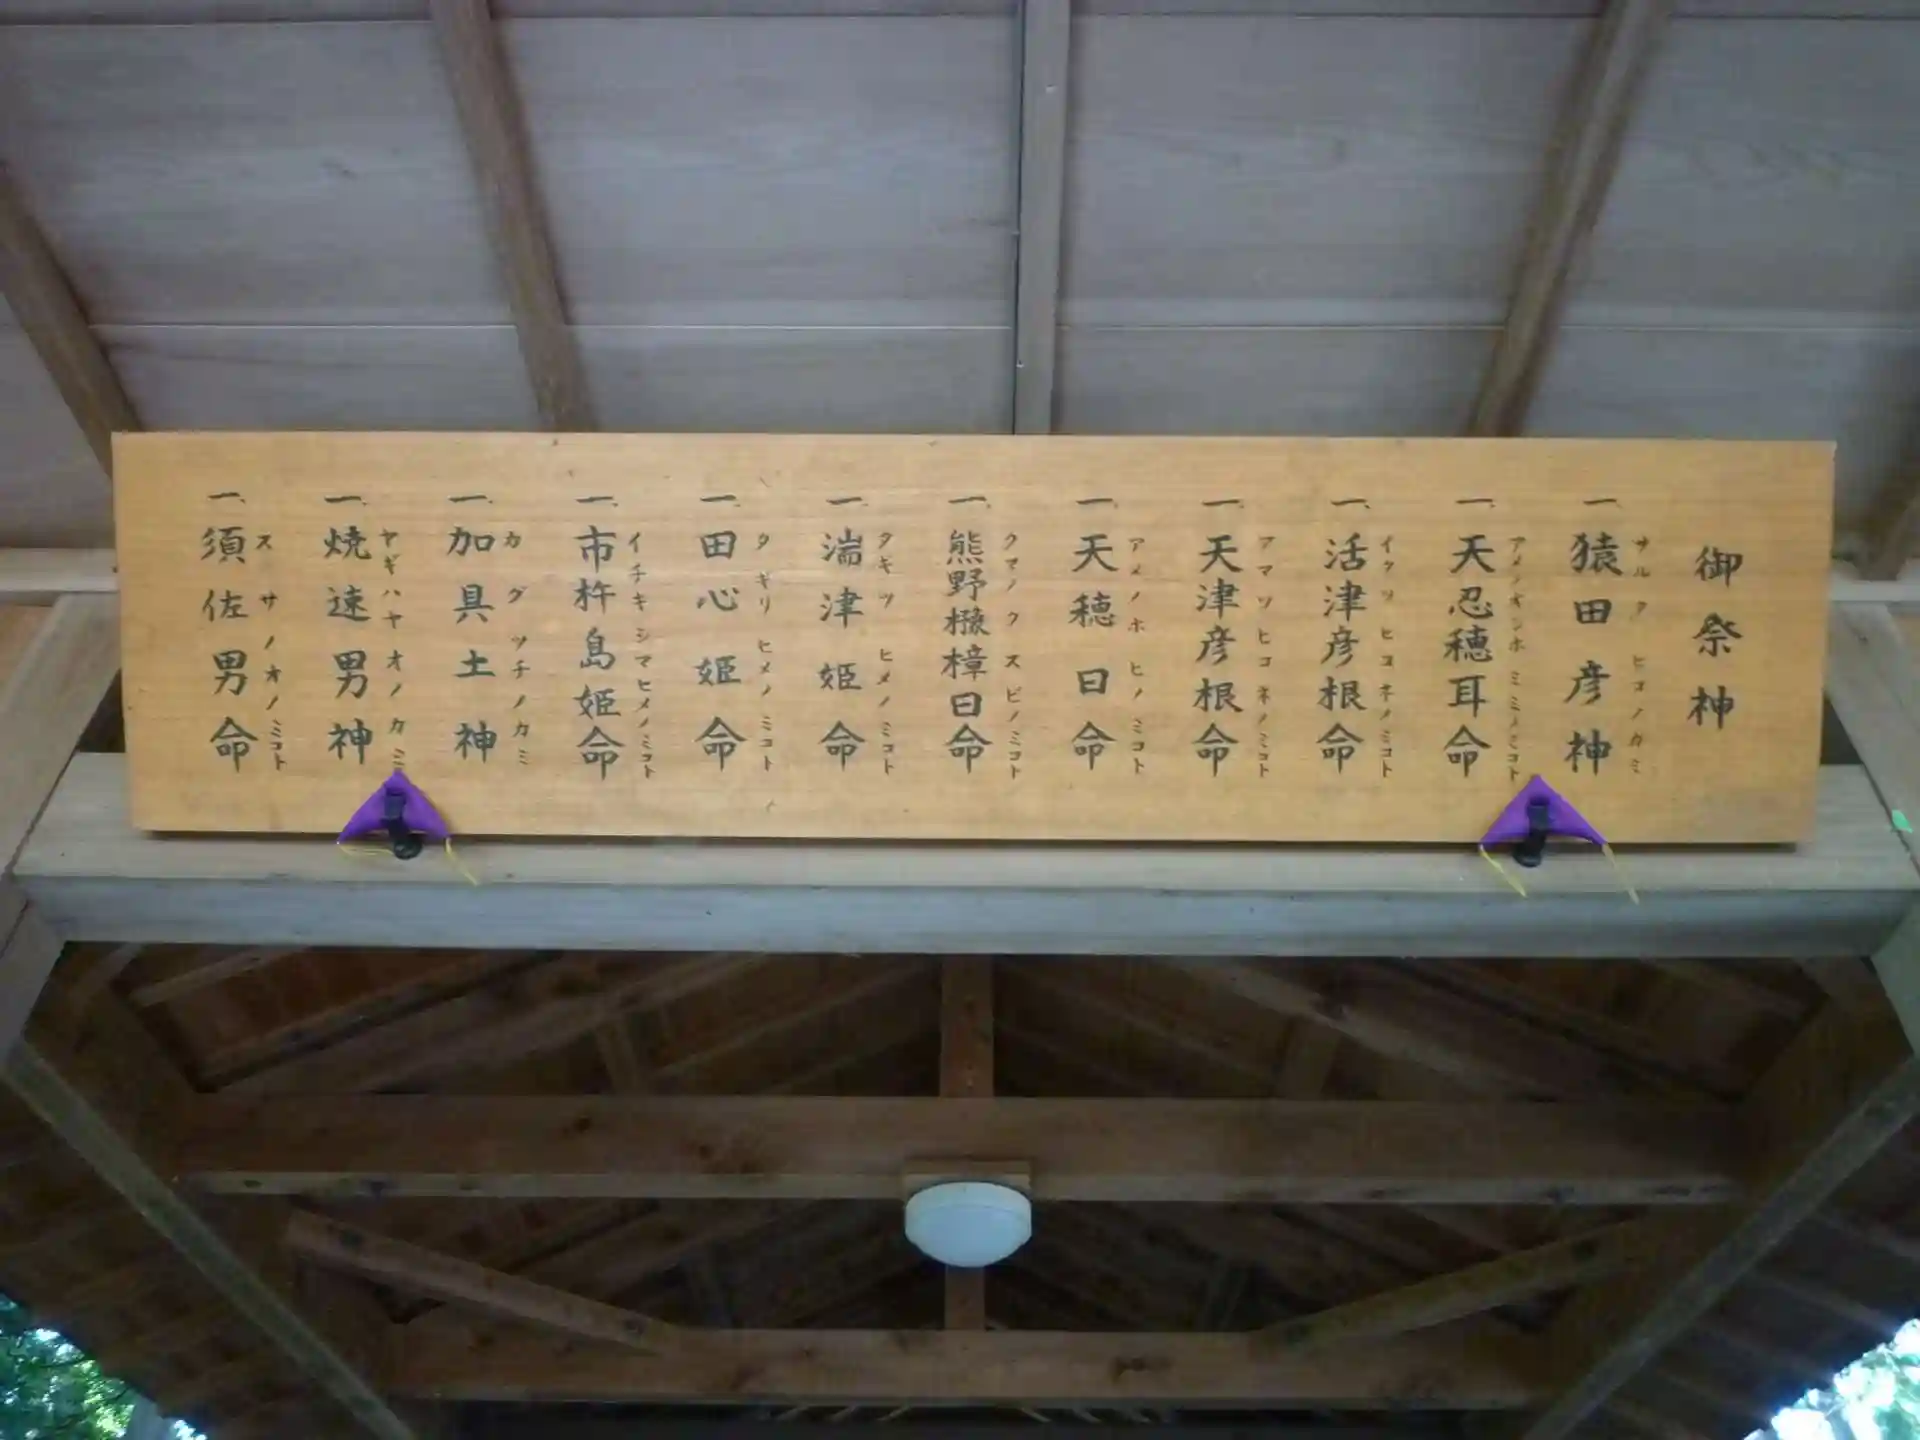 御祭神
一、猿田彦神
サルタヒコノカミ
一、天忍穂耳命
アメノオシホミミノミコト
一、活津彦根命
イクツヒコネノミコト
一、天津彦根命
アマツヒコネノミコト
一、天穂日命
アメノホヒノミコト
一、熊野櫲樟日命
クマノクスビノミコト
一、湍津姫命
タギツヒメノミコト
一、田心姫命
タギリヒメノミコト
一、市杵島姫命
イチキシマヒメノミコト
一、加具土神
カグツチノカミ
一、焼速男神
ヤギハヤオノカミ
一、須佐男命
スサノオノミコト